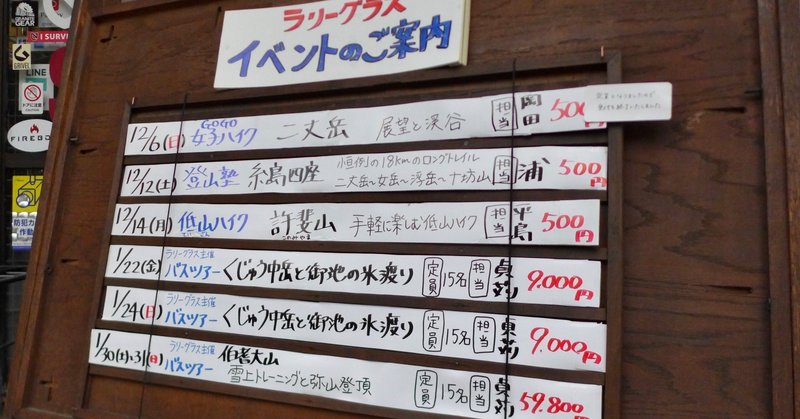 ラリーグラス
イベントのご案内
GRANITE GEAR
I SURVI
GRIVEL
LINE
ドアに注意
FIREBO
防犯カ
作動
12/6(日) GOGO 女子ハイク 二丈岳 展望と渓谷 担当 岡田 500
定員となりましたので
受付を終了いたしました
12/12(土) 登山塾 糸島四座 恒例の18kmのロングトレイル 担当 浦 500円
二丈岳〜女岳〜浮岳〜十坊山
12/14(月) 低山ハイク 許斐山 手軽に楽しむ低山ハイク 担当 平島 500円
このみやま
1/22(金) ラリーグラス主催 バスツアー くじゅう中岳と御池の氷渡り 定員 15名 担当 貞苅 9.000円
1/24(日) ラリーグラス主催 バスツアー くじゅう中岳と御池の氷渡り 定員 15名 担当 9.000円
1/30(土),31(日) ラリーグラス主催 バスツアー 伯耆大山
雪上トレーニングと弥山登頂 定員 15名 担当 59.800